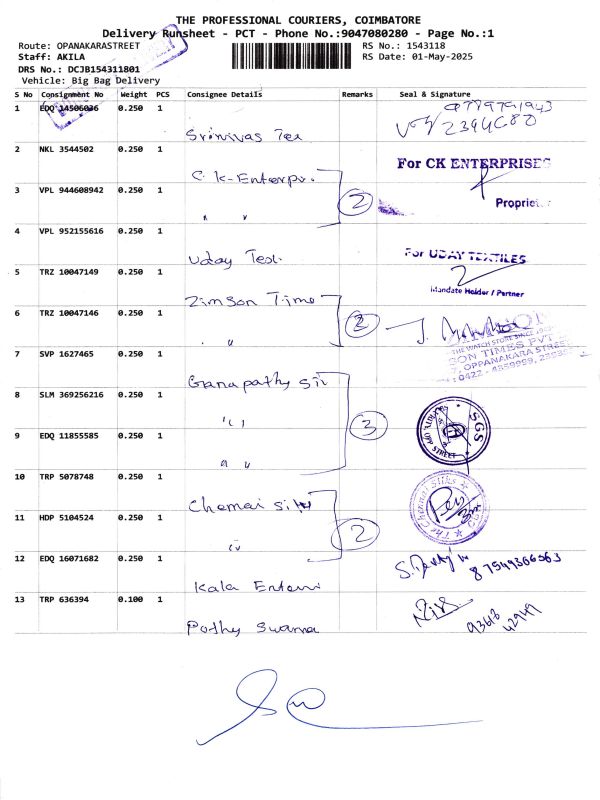 THE PROFESSIONAL COURIERS, COIMBATORE
Delivery Runsheet - PCT - Phone No.:9047080280 - Page No.:1
Route: OPANAKARASTREET RS No.: 1543118
Staff: AKILA RS Date: 01-May-2025
DRS No.: DCJB154311801
Vehicle: Big Bag Delivery
S No Consignment No Weight PCS Consignee Details Remarks Seal & Signature
1 EDQ 14506036 0.250 1
Srinivas Tex
2 NKL 3544502 0.250 1
C.K-Enterpr. For CK ENTERPRISES
3 VPL 944608942 0.250 1 2 Proprietor
" "
4 VPL 952155616 0.250 1
Uday Text. For UDAY TEXTILES
Mandate Holder / Partner
5 TRZ 10047149 0.250 1
Zimson Time
6 TRZ 10047146 0.250 1 2
" THE WATCH STORE SINCE
SON TIMES PVT
OPPANAKARA STREET
0422 - 4359999,
7 SVP 1627465 0.250 1
Ganapathy Sil
8 SLM 369256216 0.250 1
" 3 SGS
STREET
9 EDQ 11855585 0.250 1
" "
10 TRP 5078748 0.250 1
Chennai Silk The Chennai Silks
11 HDP 5104524 0.250 1 2
"
12 EDQ 16071682 0.250 1
Kala Entern
13 TRP 636394 0.100 1
Pothy Swarna 93613
42949